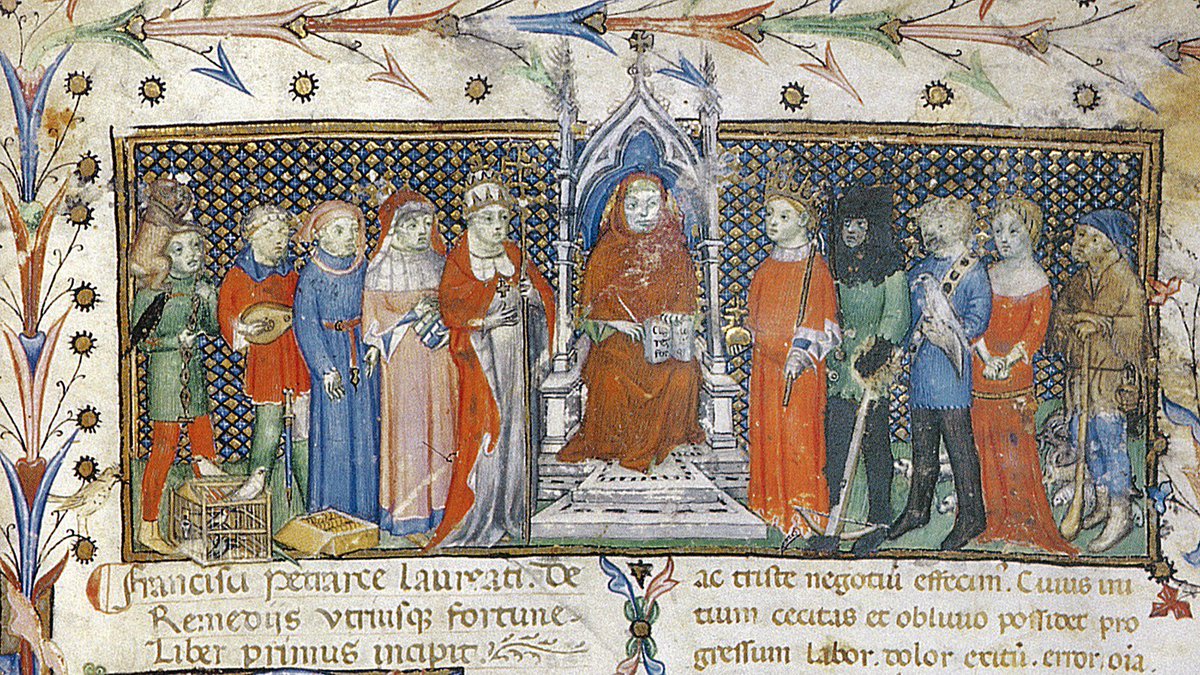 Francisci Petrarce laureati. De
Remedijs utriusq fortune.
Liber primus incipit.
ac triste negotiū effecim. Cuius ini
tium cecitas et oblivio possidet pro
gressum labor. dolor exitū. error. oīa